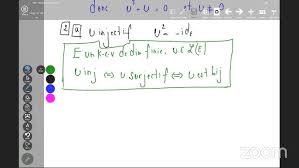 donc u² - u = 0 et u ≠ 0
2 a u injectif u² = -id_E
E un K-e.v de dim finie, u ∈ L(E)
u inj ⇔ u surjectif ⇔ u est bij
zoom